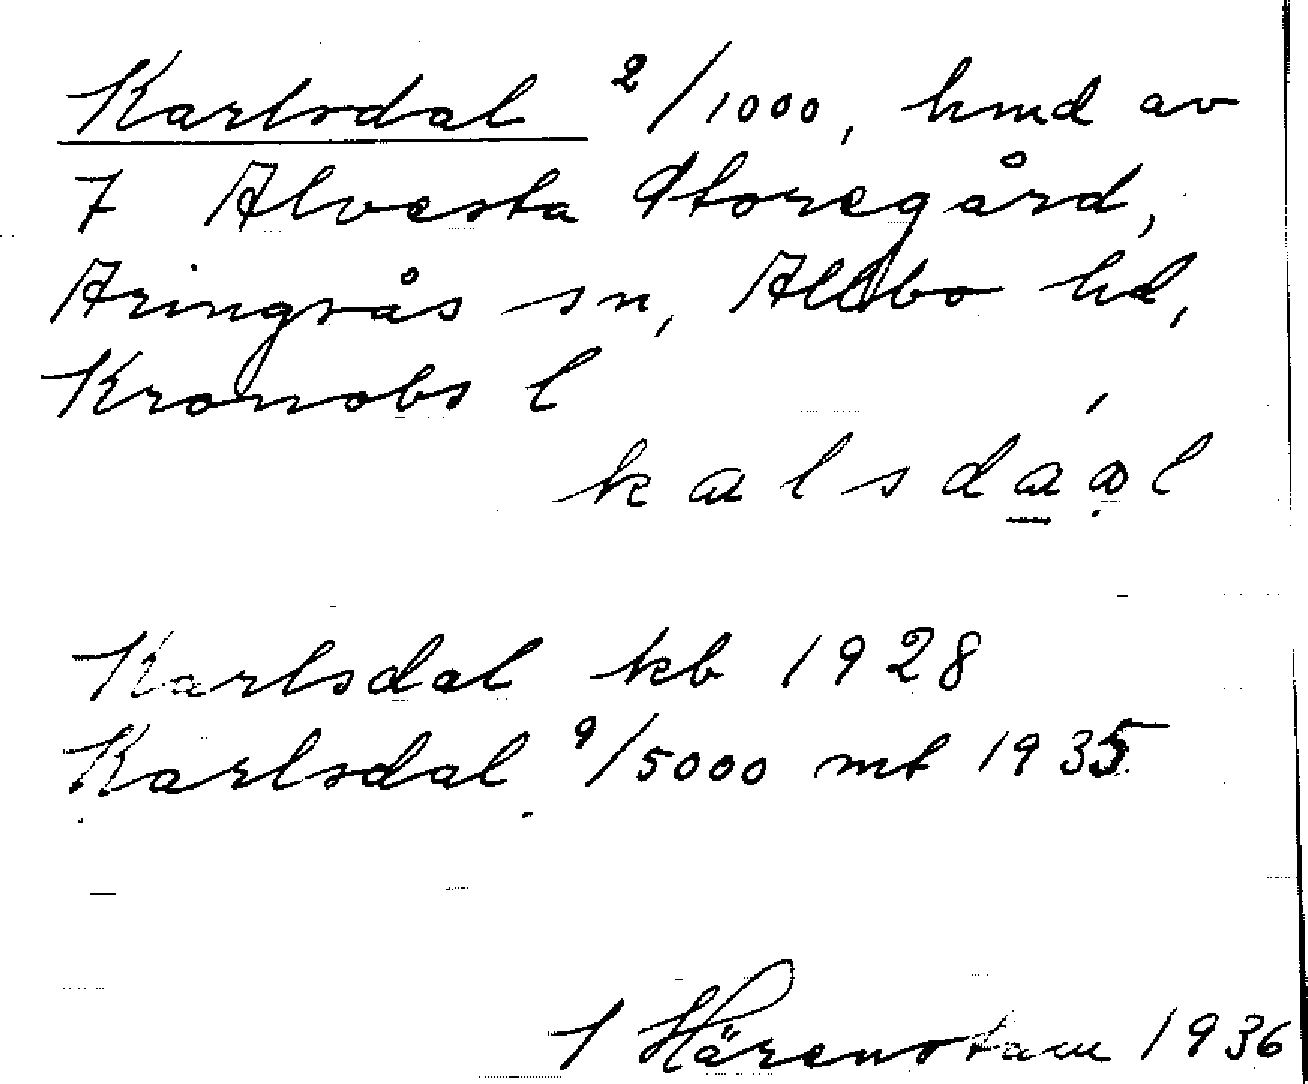 Karlsdal 2/1000, hmd av
7 Alvesta Storegård,
Aringsås sn, Allbo hd,
Kronobs l
kalsdaal
Karlsdal kb 1928
Karlsdal 9/5000 mt 1935
Härenstam 1936